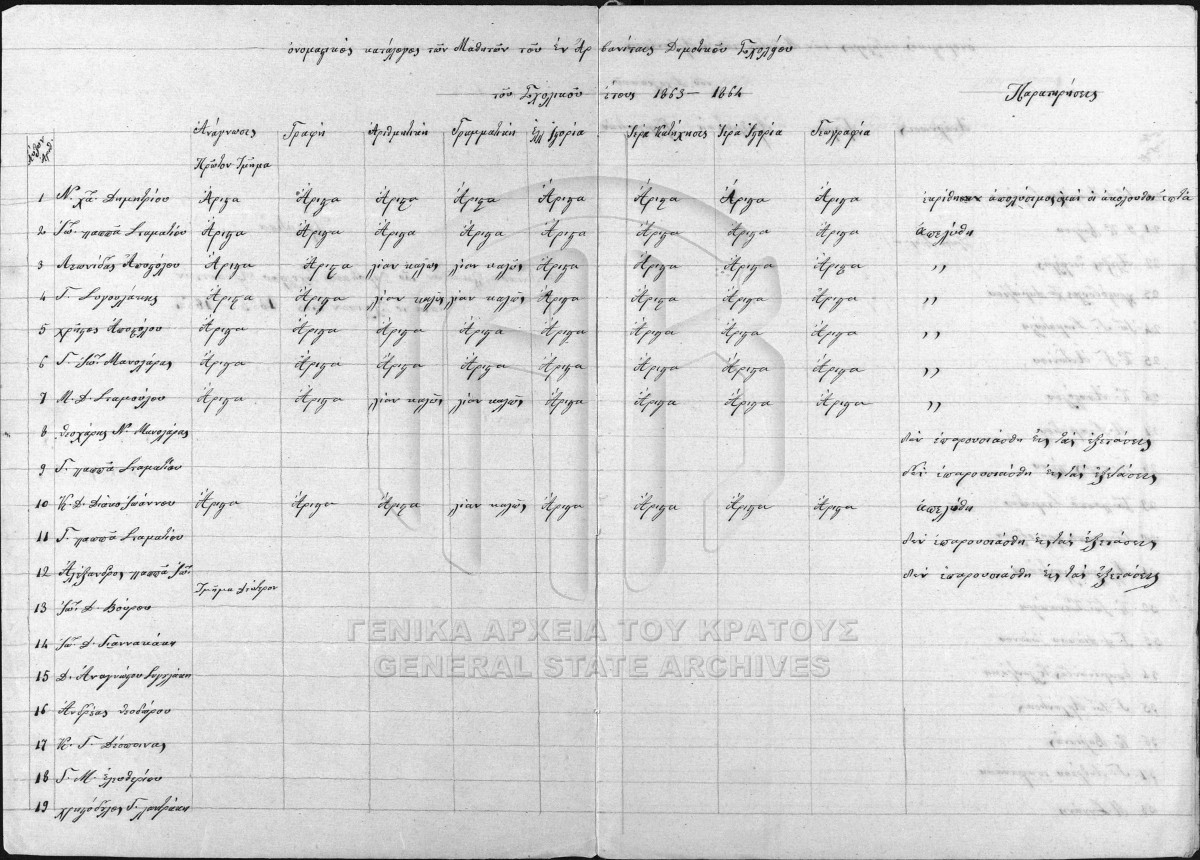 ὀνομαςικὸς κατάλογος τῶν Μαθητῶν τοῦ ἐν Ἀρβανίταις Δημοτικοῦ Σχολείου
τοῦ Σχολικοῦ ἔτους 1863 — 1864 Παρατηρήσεις
Αὔξων Ἀριθ. Ἀνάγνωσις Γραφὴ Ἀριθμητικὴ Γραμματικὴ Ἑλλ Ἱςορία Ἱερὰ Κατήχησις Ἱερὰ Ἱςορία Γεωγραφία
Πρῶτον Τμῆμα
1 Ν. χῖ Δημητρίου Ἄριςα Ἄριςα Ἄριςα Ἄριςα Ἄριςα Ἄριςα Ἄριςα Ἄριςα ἐκρίθησαν ἀπολύσιμος καὶ οἱ ἀκόλουθοι ἑπτὰ
2 Ἰω. παππᾶ Σταματίου Ἄριςα Ἄριςα Ἄριςα Ἄριςα Ἄριςα Ἄριςα Ἄριςα Ἄριςα ἀπελύθη
3 Λεωνίδας Ἀποςόλου Ἄριςα Ἄριςα λίαν καλῶς λίαν καλῶς Ἄριςα Ἄριςα Ἄριςα Ἄριςα ,,
4 Γ. Ἄριςα Ἄριςα λίαν καλῶς λίαν καλῶς Ἄριςα Ἄριςα Ἄριςα Ἄριςα ,,
5 χρῆςος Ἀποςόλου Ἄριςα Ἄριςα Ἄριςα Ἄριςα Ἄριςα Ἄριςα Ἄριςα Ἄριςα ,,
6 Γ. Ἰω. Μανολάρας Ἄριςα Ἄριςα Ἄριςα Ἄριςα Ἄριςα Ἄριςα Ἄριςα Ἄριςα ,,
7 Μ. Δ. Σταμούλου Ἄριςα Ἄριςα λίαν καλῶς λίαν καλῶς Ἄριςα Ἄριςα Ἄριςα Ἄριςα ,,
8 Θεοχάρης Ν. Μανολάρας δὲν ἐπαρουσιάσθη εἰς τὰς ἐξετάσεις
9 Γ. παππᾶ Σταματίου δὲν ἐπαρουσιάσθη εἰς τὰς ἐξετάσεις
10 Κ. Δ. Διάκο Ἰωάννου Ἄριςα Ἄριςα Ἄριςα λίαν καλῶς Ἄριςα Ἄριςα Ἄριςα Ἄριςα ἀπελύθη
11 Γ. παππᾶ Σταματίου δὲν ἐπαρουσιάσθη εἰς τὰς ἐξετάσεις
12 Ἀλέξανδρος παππᾶ Ἰω. δὲν ἐπαρουσιάσθη εἰς τὰς ἐξετάσεις
Τμῆμα Δεύτερον
13 Ἰω. Δ. Βούρου
14 Ἰω. Δ. Γιαννακάκη
15 Δ. Ἀναγνώςου
16 Ἀνδρέας Θεοδώρου
17 Κ. Γ. Δέσποινας
18 Γ. Μ. ἐλευθερίου
19 χριςόδουλος Γ.
ΓΕΝΙΚΑ ΑΡΧΕΙΑ ΤΟΥ ΚΡΑΤΟΥΣ
GENERAL STATE ARCHIVES